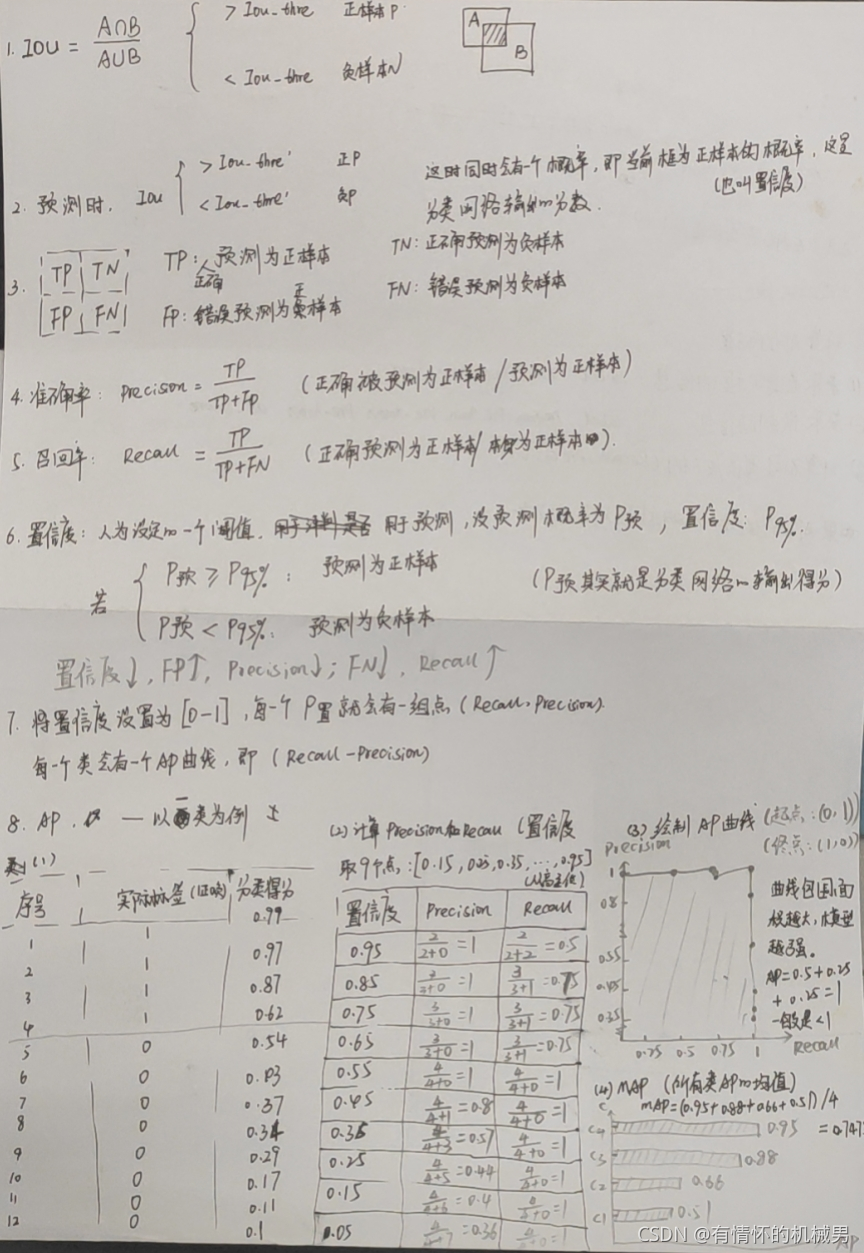 1. IOU = A∩B / A∪B { > Iou-thre 正样本P
< Iou-thre 负样本N
A B
2. 预测时. Iou { > Iou-thre' 正P
< Iou-thre' 负P
这时同时会有一个概率, 即当前框为正样本的概率, 这是
(也叫置信度)
分类网络输出的分数.
3. TP TN
FP FN
TP: 正确预测为正样本
TN: 正确预测为负样本
FP: 错误预测为正样本
FN: 错误预测为负样本
4. 准确率: Precision = TP / TP+FP (正确被预测为正样本/预测为正样本)
5. 召回率: Recall = TP / TP+FN (正确预测为正样本/本身为正样本).
6. 置信度: 人为设定的一个阈值. 用于预测, 设预测概率为P预, 置信度: P95%.
若 { P预 ≥ P95%: 预测为正样本
P预 < P95%: 预测为负样本
(P预其实就是分类网络的输出得分)
置信度↓, FP↑, Precision↓; FN↓, Recall↑
7. 将置信度设置为[0-1], 每一个P置就会有一组点(Recall, Precision).
每一个类会有一个AP曲线, 即(Recall-Precision)
8. AP. — 以一类为例
类(1)
序号 实际标签 分类得分
0.99
1 1 0.97
2 1 0.87
3 1 0.62
4 1
5 0 0.54
6 0
7 0 0.37
8 0 0.34
9 0 0.29
10 0 0.17
11 0 0.11
12 0 0.1
(2) 计算Precision和Recall (置信度
取9个点: [0.15, 0.25, 0.35, ..., 0.95]
置信度 Precision Recall
0.95 2/2+0=1 2/2+2=0.5
0.85 3/3+0=1 3/3+1=0.75
0.75 3/3+0=1 3/3+1=0.75
0.65 3/3+0=1 3/3+1=0.75
0.55 4/4+0=1 4/4+0=1
0.45 4/4+1=0.8 4/4+0=1
0.35 4/4+3=0.57 4/4+0=1
0.25 4/4+5=0.44 4/4+0=1
0.15 4/4+6=0.4 4/4+0=1
0.05 4/4+7=0.36 4/4+0=1
(3) 绘制AP曲线 (起点: (0,1))
(终点: (1,0))
Precision
1
0.8
0.55
0.45
0.35
0.25 0.5 0.75 1 Recall
曲线包围的面
积越大, 模型
越强.
AP=0.5+0.25
+0.25=1
一般是<1
(4) mAP (所有类AP的均值)
mAP=(0.95+0.88+0.66+0.51)/4
=0.747
C4 0.95
C3 0.88
C2 0.66
C1 0.51
CSDN @有情怀的机械男